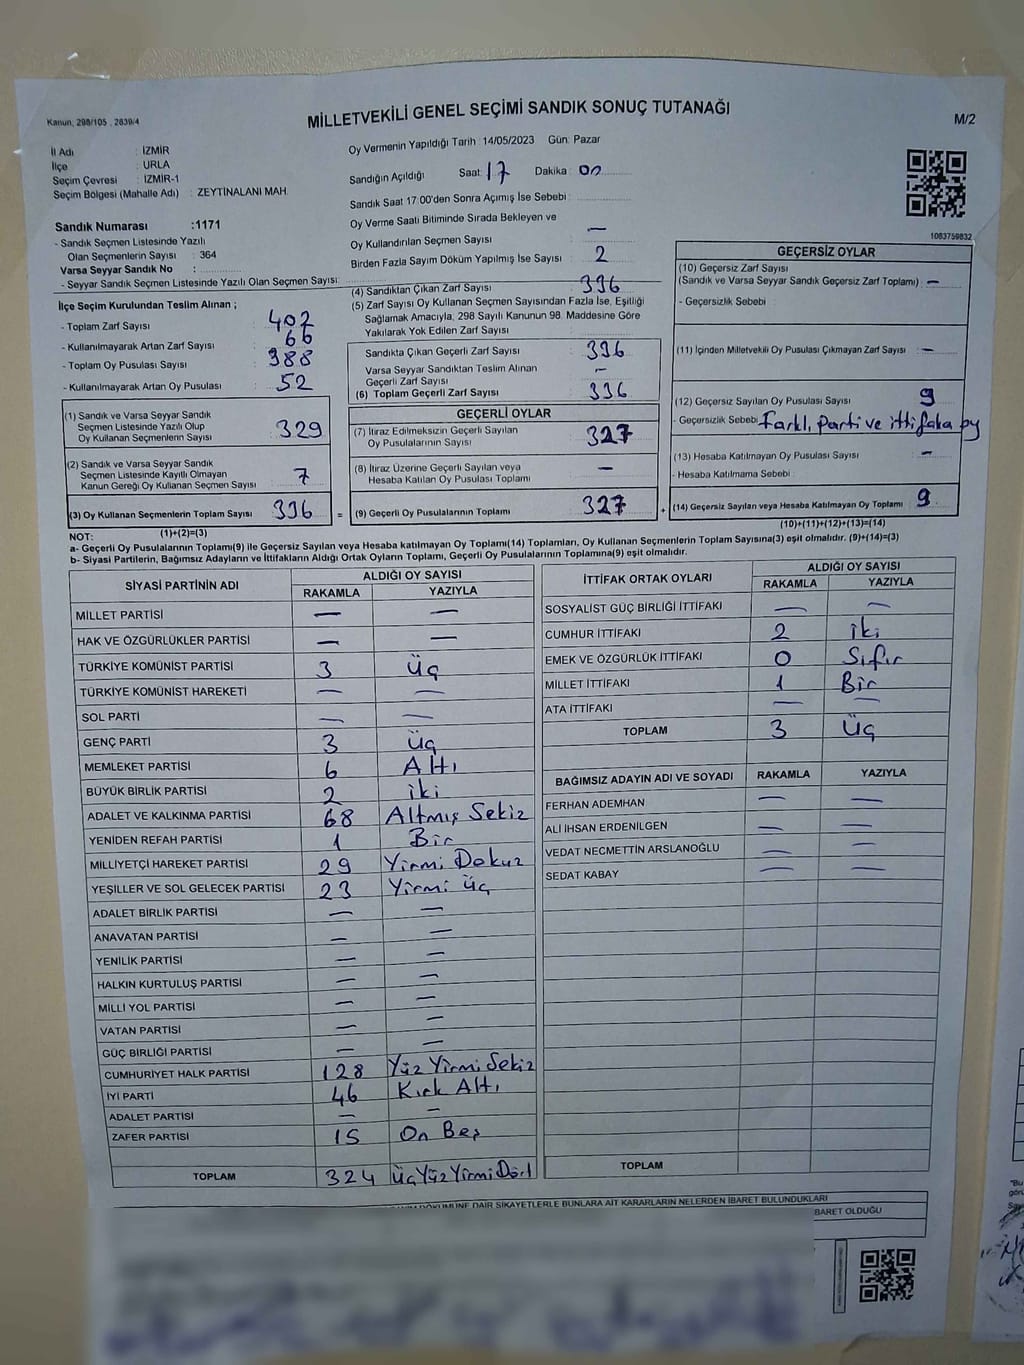 Kanun, 298/105 , 2839/4
MİLLETVEKİLİ GENEL SEÇİMİ SANDIK SONUÇ TUTANAĞI
M/2
İl Adı : İZMİR
İlçe : URLA
Seçim Çevresi : İZMİR-1
Seçim Bölgesi (Mahalle Adı) : ZEYTİNALANI MAH.
Oy Vermenin Yapıldığı Tarih : 14/05/2023 Gün: Pazar
Sandığın Açıldığı Saat: 17 Dakika : 00
Sandık Saat 17:00'den Sonra Açımış İse Sebebi :
Oy Verme Saati Bitiminde Sırada Bekleyen ve
Oy Kullandırılan Seçmen Sayısı : —
Birden Fazla Sayım Döküm Yapılmış İse Sayısı : 2
Sandık Numarası :1171
- Sandık Seçmen Listesinde Yazılı
Olan Seçmenlerin Sayısı : 364
Varsa Seyyar Sandık No :
- Seyyar Sandık Seçmen Listesinde Yazılı Olan Seçmen Sayısı:
1083759832
İlçe Seçim Kurulundan Teslim Alınan ;
- Toplam Zarf Sayısı : 402
- Kullanılmayarak Artan Zarf Sayısı : 66
- Toplam Oy Pusulası Sayısı : 388
- Kullanılmayarak Artan Oy Pusulası : 52
(1) Sandık ve Varsa Seyyar Sandık
Seçmen Listesinde Yazılı Olup
Oy Kullanan Seçmenlerin Sayısı : 329
(2) Sandık ve Varsa Seyyar Sandık
Seçmen Listesinde Kayıtlı Olmayan
Kanun Gereği Oy Kullanan Seçmen Sayısı : 7
(3) Oy Kullanan Seçmenlerin Toplam Sayısı : 336
(1)+(2)=(3)
(4) Sandıktan Çıkan Zarf Sayısı : 336
(5) Zarf Sayısı Oy Kullanan Seçmen Sayısından Fazla İse, Eşitliği
Sağlamak Amacıyla, 298 Sayılı Kanunun 98. Maddesine Göre
Yakılarak Yok Edilen Zarf Sayısı :
Sandıkta Çıkan Geçerli Zarf Sayısı : 336
Varsa Seyyar Sandıktan Teslim Alınan
Geçerli Zarf Sayısı : —
(6) Toplam Geçerli Zarf Sayısı : 336
GEÇERLİ OYLAR
(7) İtiraz Edilmeksizin Geçerli Sayılan
Oy Pusulalarının Sayısı : 327
(8) İtiraz Üzerine Geçerli Sayılan veya
Hesaba Katılan Oy Pusulası Toplamı : —
= (9) Geçerli Oy Pusulalarının Toplamı : 327
GEÇERSİZ OYLAR
(10) Geçersiz Zarf Sayısı
(Sandık ve Varsa Seyyar Sandık Geçersiz Zarf Toplamı) : —
- Geçersizlik Sebebi :
(11) İçinden Milletvekili Oy Pusulası Çıkmayan Zarf Sayısı : —
(12) Geçersiz Sayılan Oy Pusulası Sayısı : 9
- Geçersizlik Sebebi : Farklı parti ve ittifaka oy
(13) Hesaba Katılmayan Oy Pusulası Sayısı : —
- Hesaba Katılmama Sebebi :
+ (14) Geçersiz Sayılan veya Hesaba Katılmayan Oy Toplamı : 9
(10)+(11)+(12)+(13)=(14)
NOT:
a- Geçerli Oy Pusulalarının Toplamı(9) ile Geçersiz Sayılan veya Hesaba Katılmayan Oy Toplamı(14) Toplamları, Oy Kullanan Seçmenlerin Toplam Sayısına(3) eşit olmalıdır. (9)+(14)=(3)
b- Siyasi Partilerin, Bağımsız Adayların ve İttifakların Aldığı Ortak Oyların Toplamı, Geçerli Oy Pusulalarının Toplamına(9) eşit olmalıdır.
SİYASİ PARTİNİN ADI ALDIĞI OY SAYISI
RAKAMLA YAZIYLA
MİLLET PARTİSİ — —
HAK VE ÖZGÜRLÜKLER PARTİSİ — —
TÜRKİYE KOMÜNİST PARTİSİ 3 Üç
TÜRKİYE KOMÜNİST HAREKETİ — —
SOL PARTİ — —
GENÇ PARTİ 3 Üç
MEMLEKET PARTİSİ 6 Altı
BÜYÜK BİRLİK PARTİSİ 2 iki
ADALET VE KALKINMA PARTİSİ 68 Altmış Sekiz
YENİDEN REFAH PARTİSİ 1 Bir
MİLLİYETÇİ HAREKET PARTİSİ 29 Yirmi Dokuz
YEŞİLLER VE SOL GELECEK PARTİSİ 23 Yirmi üç
ADALET BİRLİK PARTİSİ — —
ANAVATAN PARTİSİ — —
YENİLİK PARTİSİ — —
HALKIN KURTULUŞ PARTİSİ — —
MİLLİ YOL PARTİSİ — —
VATAN PARTİSİ — —
GÜÇ BİRLİĞİ PARTİSİ — —
CUMHURİYET HALK PARTİSİ 128 Yüz Yirmi Sekiz
İYİ PARTİ 46 Kırk Altı
ADALET PARTİSİ — —
ZAFER PARTİSİ 15 On Beş
TOPLAM 324 Üç Yüz Yirmi Dört
İTTİFAK ORTAK OYLARI ALDIĞI OY SAYISI
RAKAMLA YAZIYLA
SOSYALİST GÜÇ BİRLİĞİ İTTİFAKI — —
CUMHUR İTTİFAKI 2 iki
EMEK VE ÖZGÜRLÜK İTTİFAKI 0 Sıfır
MİLLET İTTİFAKI 1 Bir
ATA İTTİFAKI — —
TOPLAM 3 Üç
BAĞIMSIZ ADAYIN ADI VE SOYADI RAKAMLA YAZIYLA
FERHAN ADEMHAN — —
ALİ İHSAN ERDENİLGEN — —
VEDAT NECMETTİN ARSLANOĞLU — —
SEDAT KABAY — —
TOPLAM
DÖKÜMÜNE DAİR ŞİKAYETLERLE BUNLARA AİT KARARLARIN NELERDEN İBARET BULUNDUKLARI
İBARET OLDUĞU